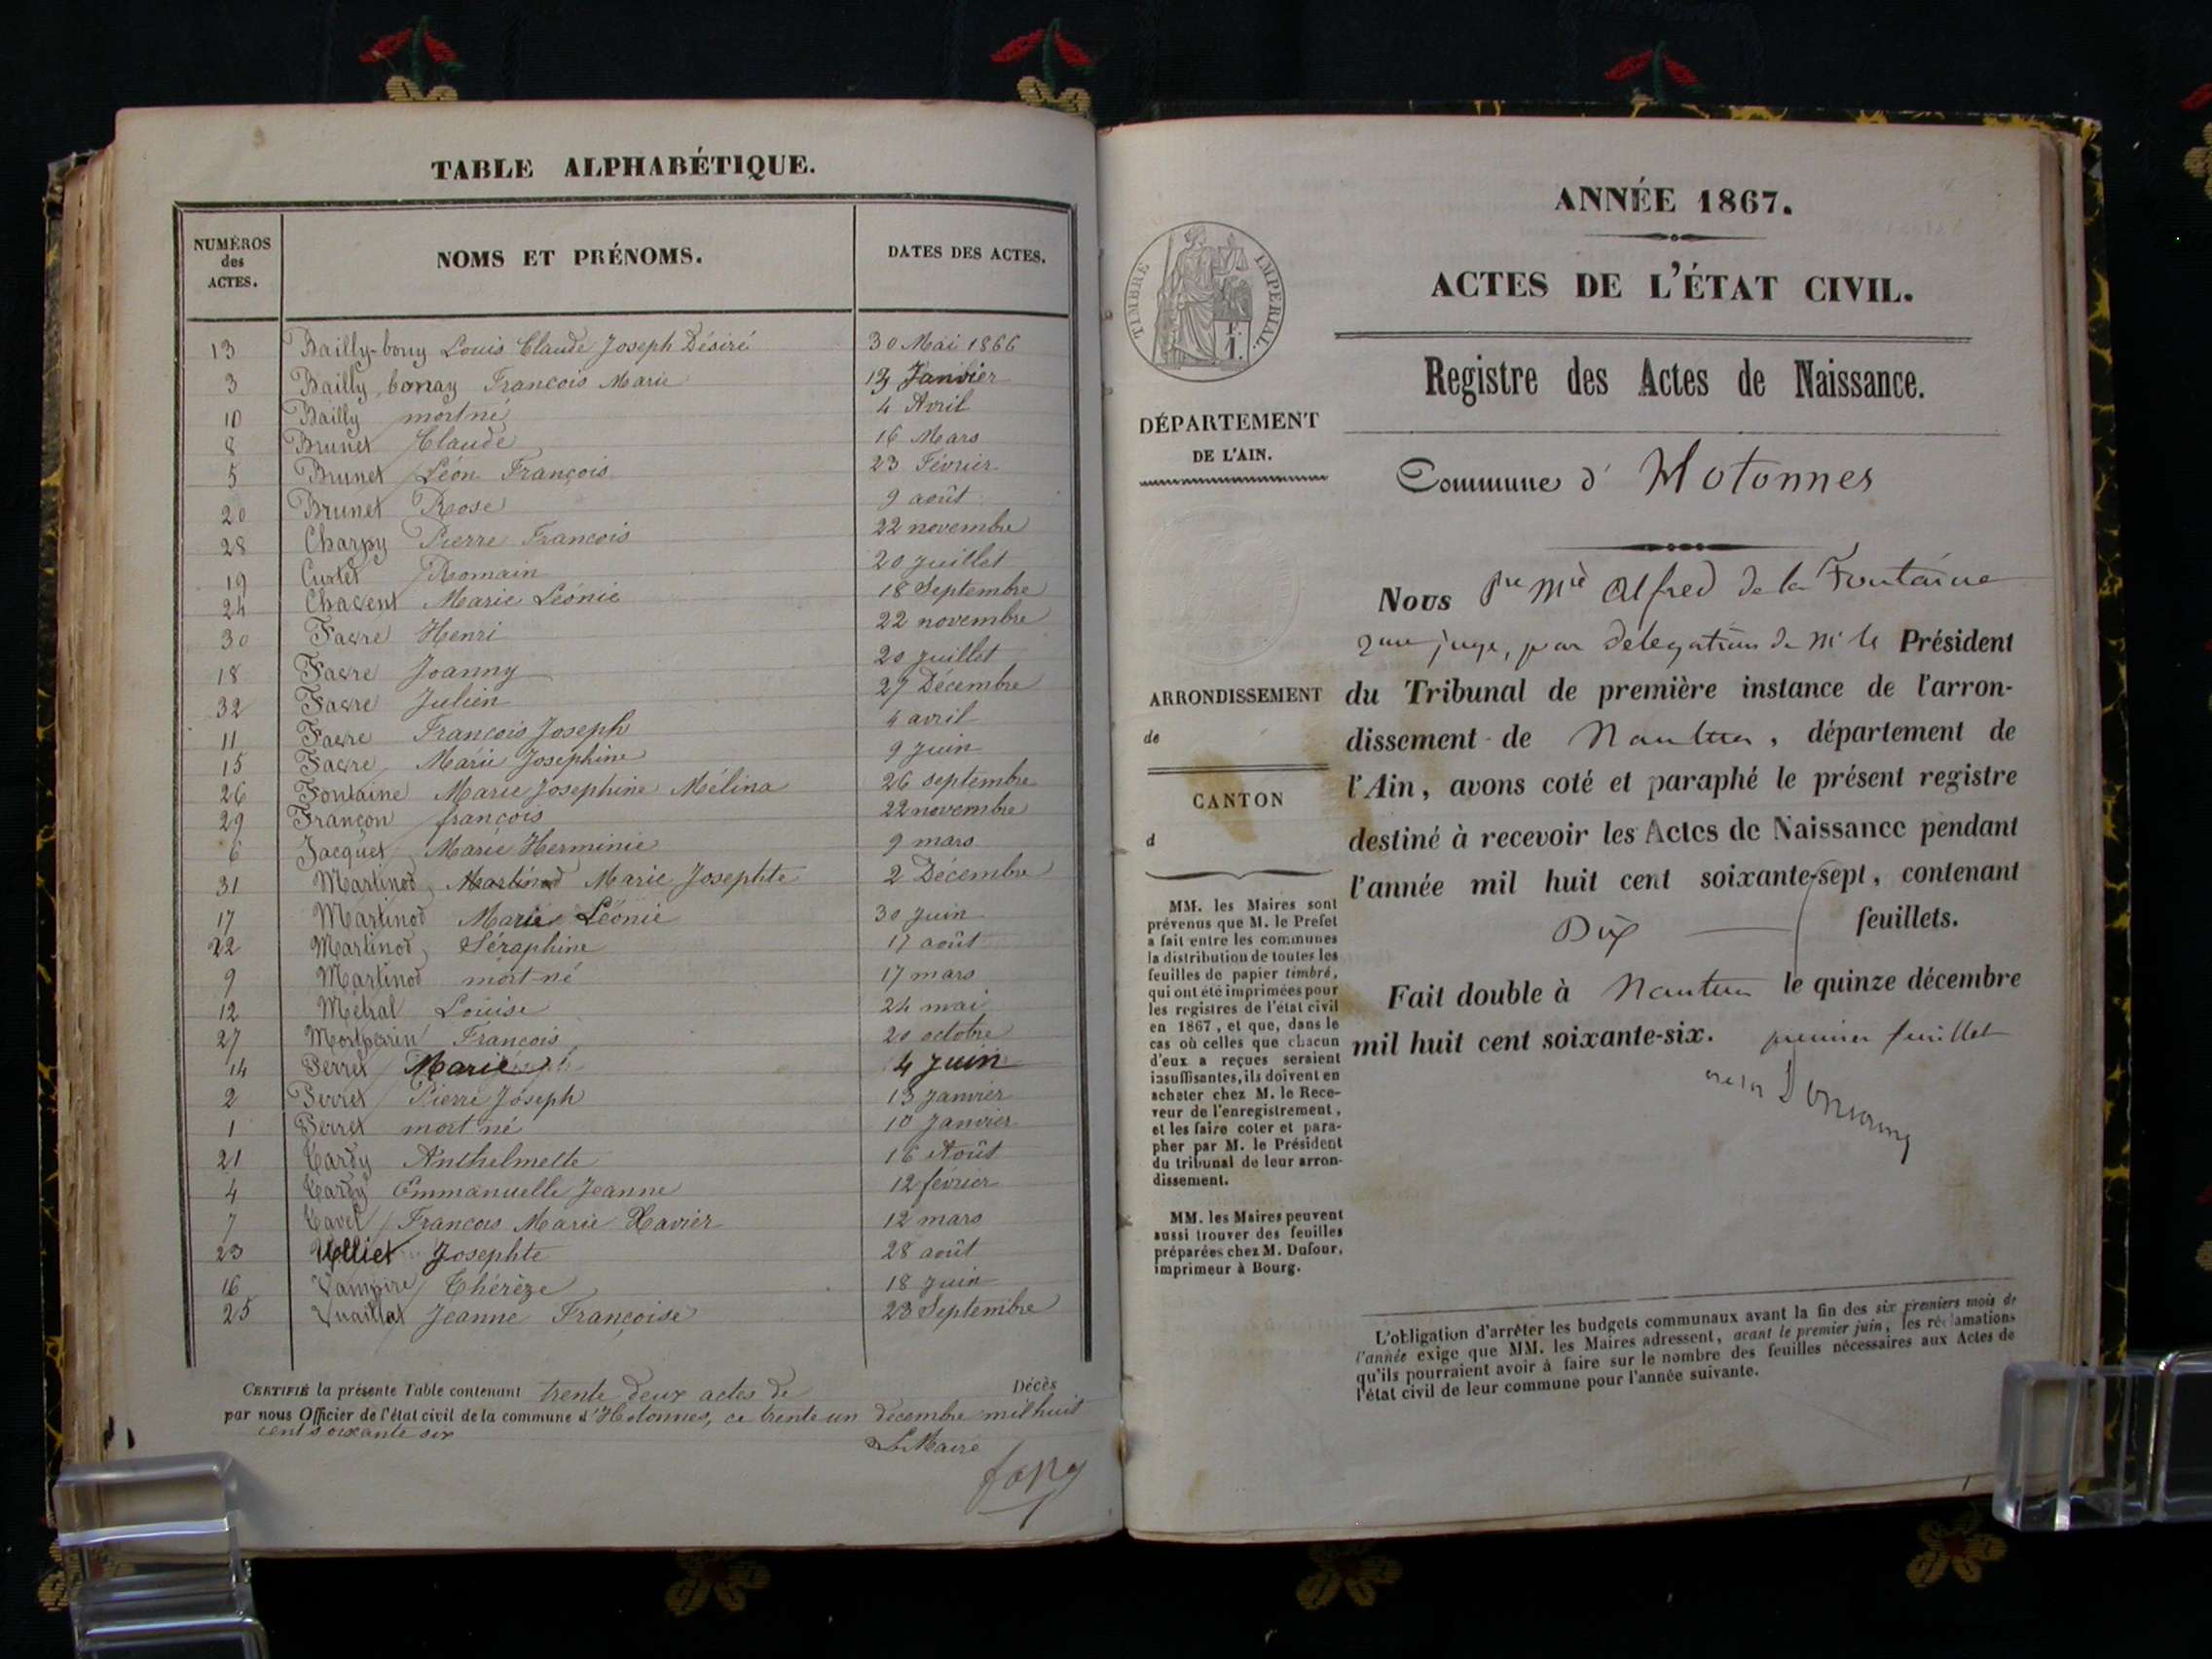 TABLE ALPHABÉTIQUE.
NUMÉROS des ACTES. NOMS ET PRÉNOMS. DATES DES ACTES.
13 Bailly-bouy Louis Claude Joseph Désiré 30 Mai 1866
3 Bailly, bonay Francois Marie Janvier
10 Bailly mort né 4 Avril
8 Brunet Claude 16 Mars
5 Brunet Léon François 23 Février
20 Brunet Rose 9 août
28 Charpy Pierre Francois 22 novembre
19 Curtet Romain 20 juillet
24 Chavent Marie Léonie 18 Septembre
30 Favre Henri 22 novembre
18 Favre Joanny 20 juillet
32 Favre Julien 27 Décembre
11 Favre Francois Joseph 4 avril
15 Favre Marie Josephine 9 juin
26 Fontaine Marie Josephine Mélina 26 septembre
29 Françon françois 22 novembre
6 Jacquet Marie Herminie 9 mars
31 Martinod, Martinod Marie Josephte 2 Décembre
17 Martinod Marie Léonie 30 juin
22 Martinod, Séraphine 17 août
9 Martinod mort-né 17 mars
12 Métral Louise 24 mai
27 Montperin Francois 20 octobre
14 Perret Marie 4 juin
2 Perret Pierre Joseph 13 janvier
1 Perret mort né 10 Janvier
21 Tardy Anthelmette 16 Août
4 Tardy Emmanuelle Jeanne 12 février
7 Tavel Francois Marie Xavier 12 mars
23 Josephte 28 août
16 Vampire Thérèze 18 juin
25 Vuaillat Jeanne Françoise 23 Septembre
CERTIFIÉ la présente Table contenant trente deux actes de Décès
par nous Officier de l'état civil de la commune d'Hotonnes, ce trente un décembre mil huit
cent soixante six
Le Maire
ANNÉE 1867.
ACTES DE L'ÉTAT CIVIL.
Registre des Actes de Naissance.
TIMBRE IMPERIAL
1.
DÉPARTEMENT
DE L'AIN.
Commune d' Hotonnes
Nous Alfred de la Fontaine
juge, par délégation de Mr le Président
du Tribunal de première instance de l'arron-
dissement de Nantua, département de
l'Ain, avons coté et paraphé le présent registre
destiné à recevoir les Actes de Naissance pendant
l'année mil huit cent soixante-sept, contenant
Dix feuillets.
Fait double à Nantua le quinze décembre
mil huit cent soixante-six. premier feuillet
ARRONDISSEMENT
de
CANTON
d
MM. les Maires sont
prévenus que M. le Prefet
a fait entre les communes
la distribution de toutes les
feuilles de papier timbré,
qui ont été imprimées pour
les registres de l'état civil
en 1867, et que, dans le
cas où celles que chacun
d'eux a reçues seraient
insuffisantes, ils doivent en
acheter chez M. le Rece-
veur de l'enregistrement,
et les faire coter et para-
pher par M. le Président
du tribunal de leur arron-
dissement.
MM. les Maires peuvent
aussi trouver des feuilles
préparées chez M. Dufour,
imprimeur à Bourg.
L'obligation d'arrêter les budgets communaux avant la fin des six premiers mois de
l'année exige que MM. les Maires adressent, avant le premier juin, les réclamations
qu'ils pourraient avoir à faire sur le nombre des feuilles nécessaires aux Actes de
l'état civil de leur commune pour l'année suivante.